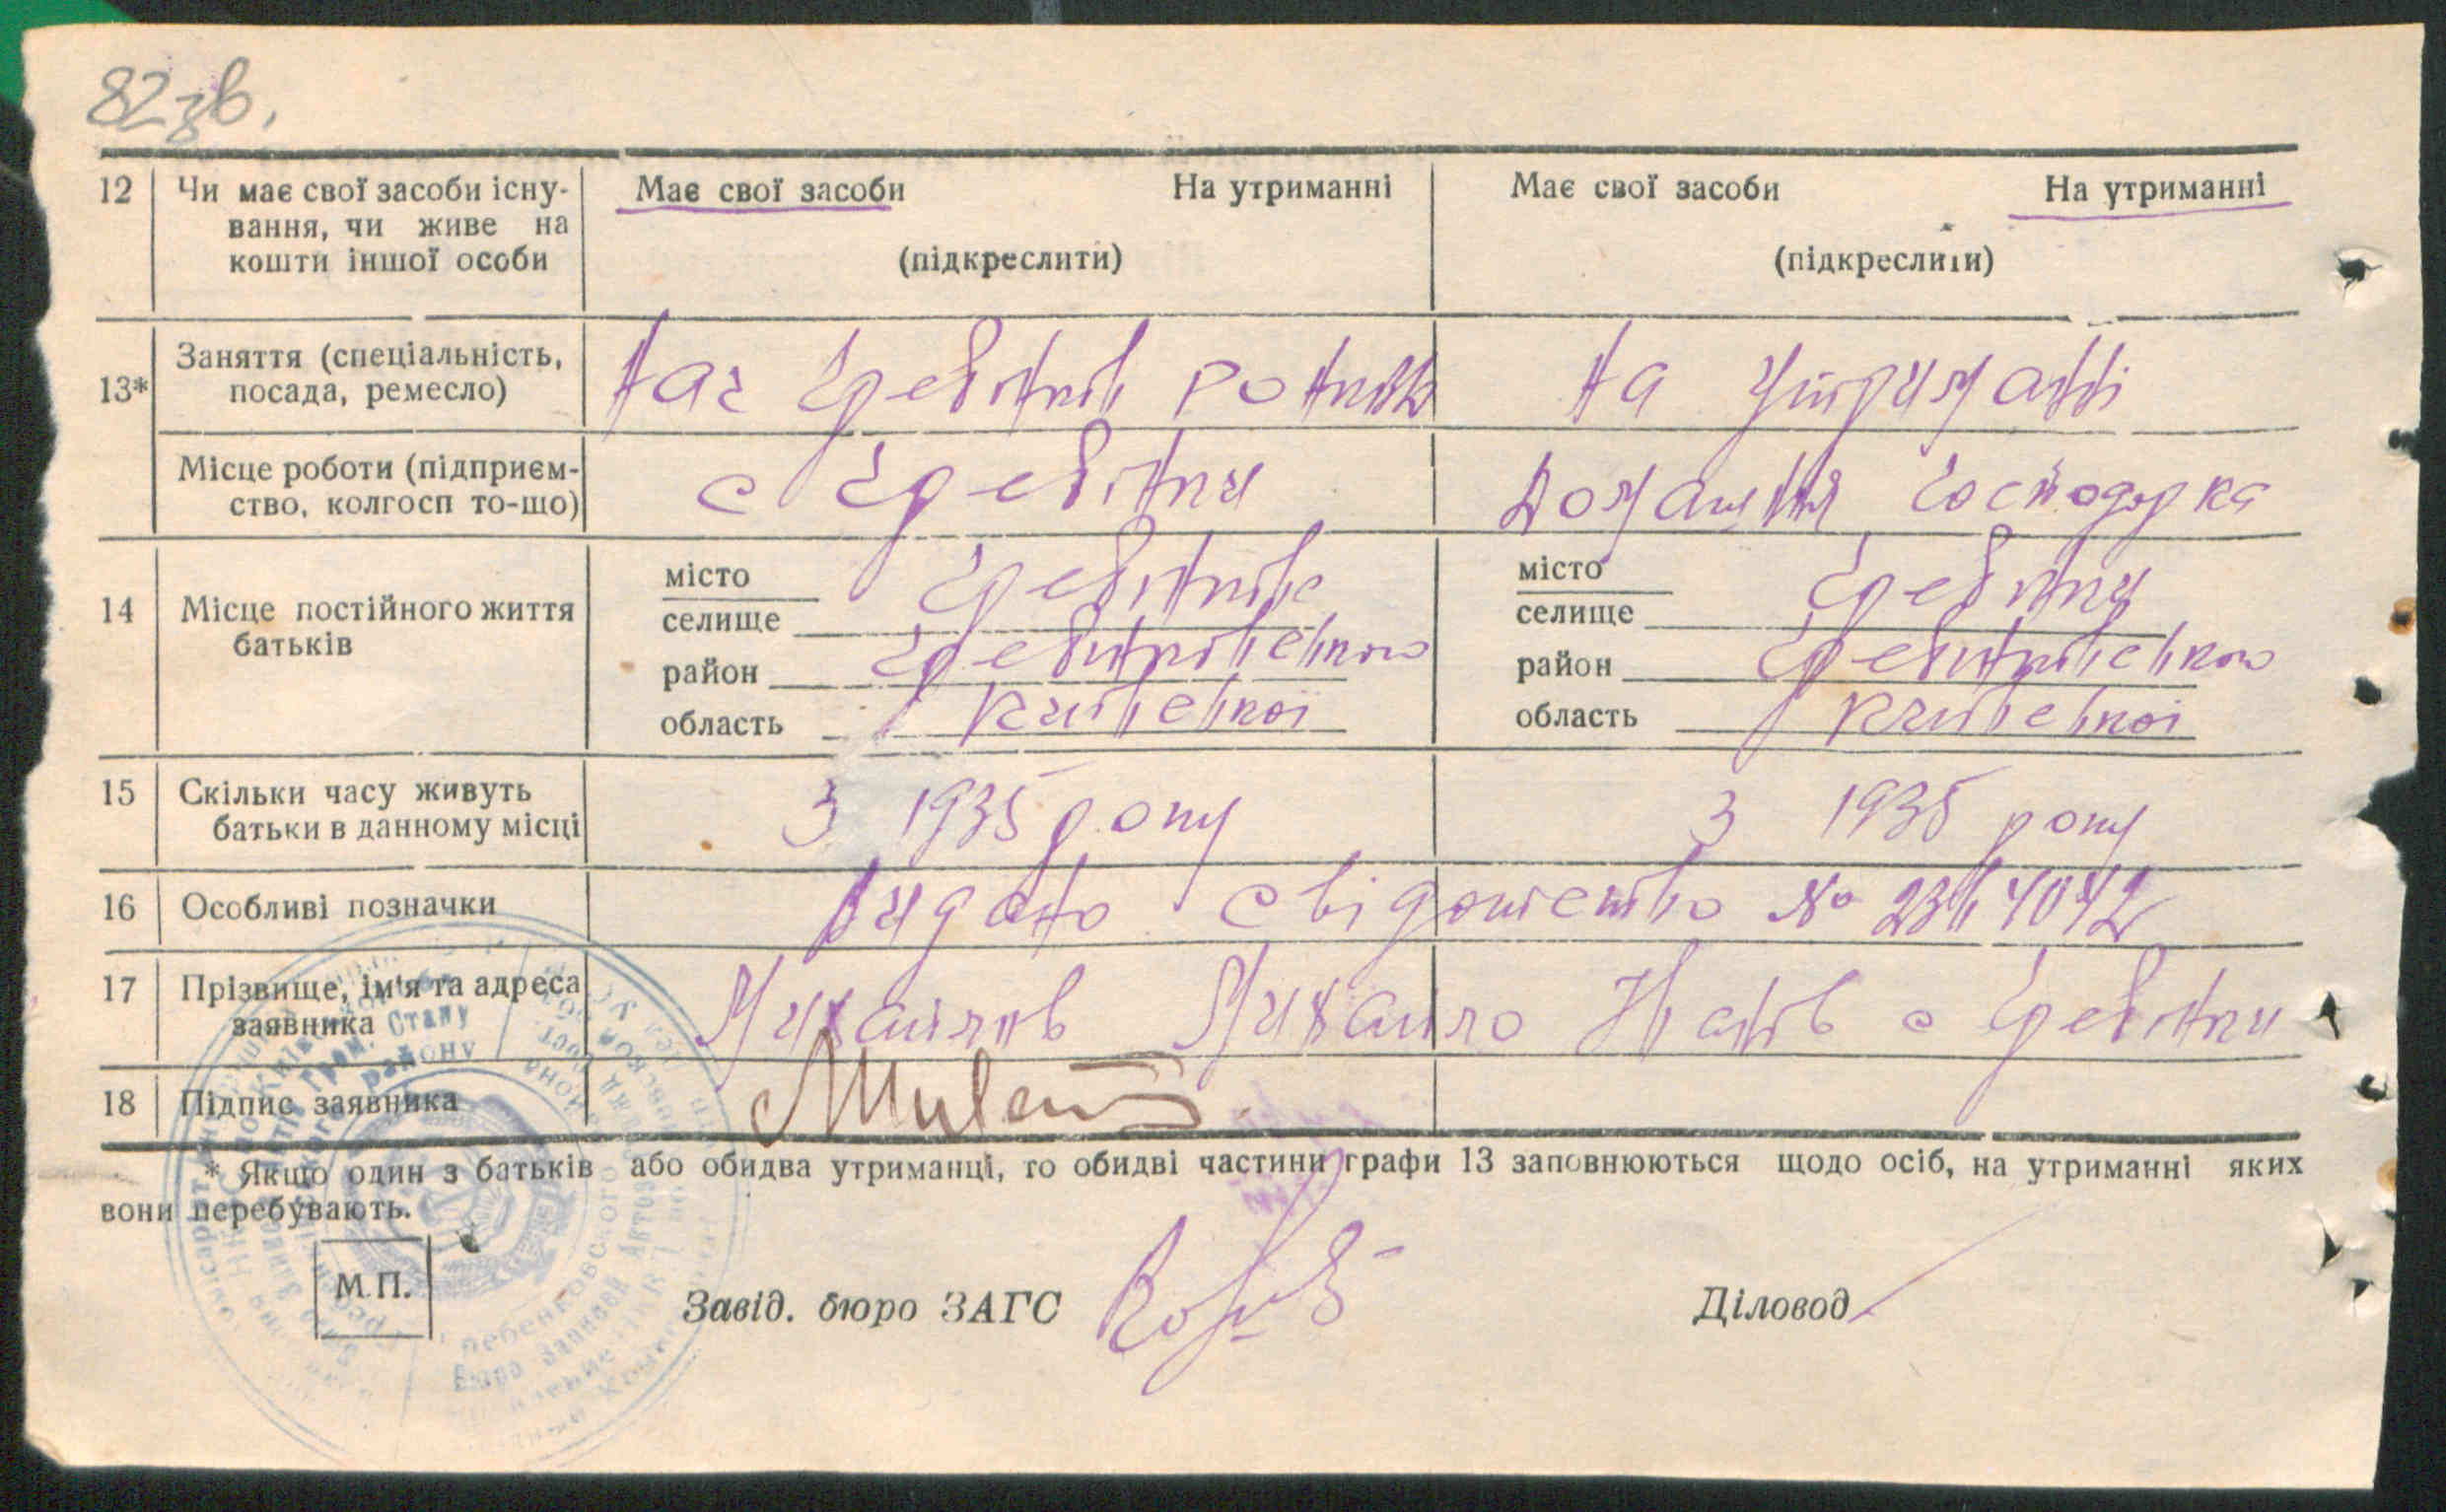 82 зв.
12 Чи має свої засоби існу-
вання, чи живе на
кошти іншої особи
Має свої засоби На утриманні
(підкреслити)
Має свої засоби На утриманні
(підкреслити)
13* Заняття (спеціальність,
посада, ремесло)
Нач Гребінків
На утриманні
Місце роботи (підприєм-
ство, колгосп то-що)
с Гребінки
домашня господарка
14 Місце постійного життя
батьків
місто
селище Гребінків
район Гребінківського
область Київської
місто
селище Гребінки
район Гребінківського
область Київської
15 Скільки часу живуть
батьки в данному місці
З 1935 року
З 1935 року
16 Особливі позначки
Видано свідоцтво №
17 Прізвище, ім'я та адреса
заявника
Михайлов Михайло с Гребінки
18 Підпис заявника
* Якщо один з батьків або обидва утриманці, то обидві частини графи 13 заповнюються щодо осіб, на утриманні яких
вони перебувають.
М.П.
Завід. бюро ЗАГС
Діловод